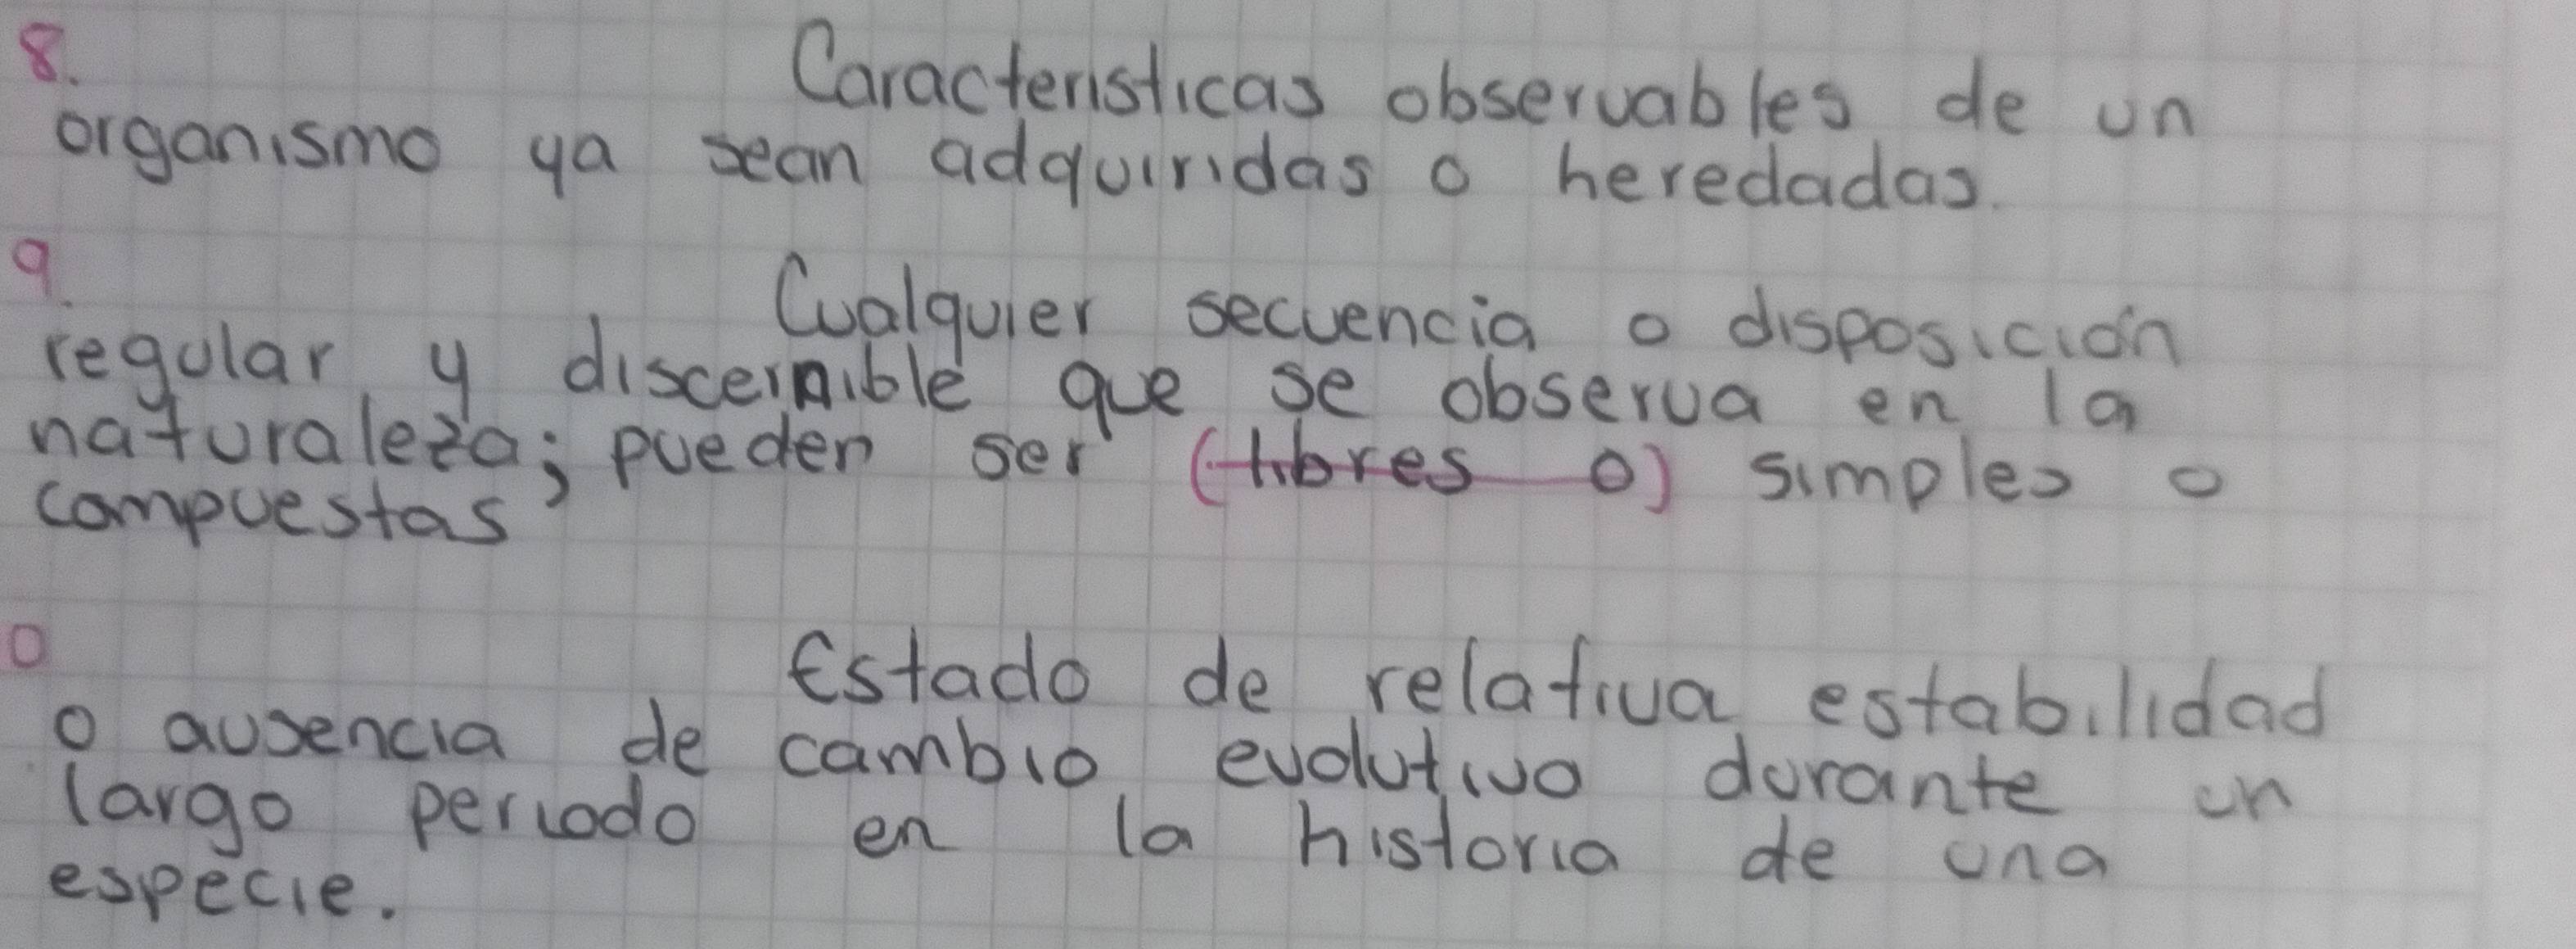 8. Caracteristicas observables de un
organismo ya sean adquiridas o heredadas.
9. Cualquier secuencia o disposición
regular y discernible que se observa en la
naturaleza; pueden ser (libres o) simples o
compuestas
0 Estado de relativa estabilidad
o ausencia de cambio evolutivo durante un
largo periodo en la historia de una
especie.